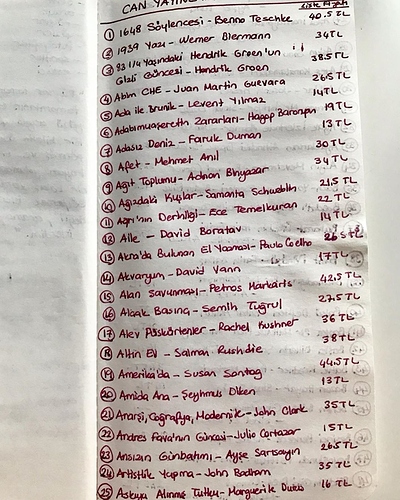 CAN YAYIN
Liste Fiyatı
① 1648 Söylencesi - Benno Teschke 40.5 TL
② 1939 Yazı - Werner Biermann 34 TL
③ 83 1/4 Yaşındaki Hendrik Groen'un
Gizli Güncesi - Hendrik Groen 38.5 TL
④ Abim CHE - Juan Martin Guevara 26.5 TL
⑤ Ada ile Brunik - Levent Yılmaz 14 TL
⑥ Adabımuaşereth Zararları - Hagop Baronyan 19 TL
⑦ Adasız Deniz - Faruk Duman 13 TL
⑧ Afet - Mehmet Anıl 30 TL
⑨ Ağıt Toplumu - Adnan Binyazar 34 TL
⑩ Ağızdaki Kuşlar - Samanta Schweblin 21.5 TL
⑪ Ağrı'nın Derinliği - Ece Temelkuran 22 TL
⑫ Aile - David Boratav 14 TL
⑬ Akra'da Bulunan El Yazması - Paulo Coelho 26.5 TL
⑭ Akvaryum - David Vann 17 TL
⑮ Alan Savunması - Petros Markaris 42.5 TL
⑯ Alçak Basınç - Semih Tuğrul 27.5 TL
⑰ Alev Püskürtenler - Rachel Kushner 36 TL
⑱ Altın Ev - Salman Rushdie 38 TL
⑲ Amerika'da - Susan Sontag 44.5 TL
⑳ Amida Ana - Şeyhmus Diken 13 TL
㉑ Anarşi, Coğrafya, Modernik - John Clark 35 TL
㉒ Andres Fava'nın Güncesi - Julio Cortazar 15 TL
㉓ Ansızın Günbatımı - Ayşe Sarısayın 26.5 TL
㉔ Artistlik Yapma - John Badham 35 TL
㉕ Askıya Alınmış Tutku - Marguerite Duras 16 TL